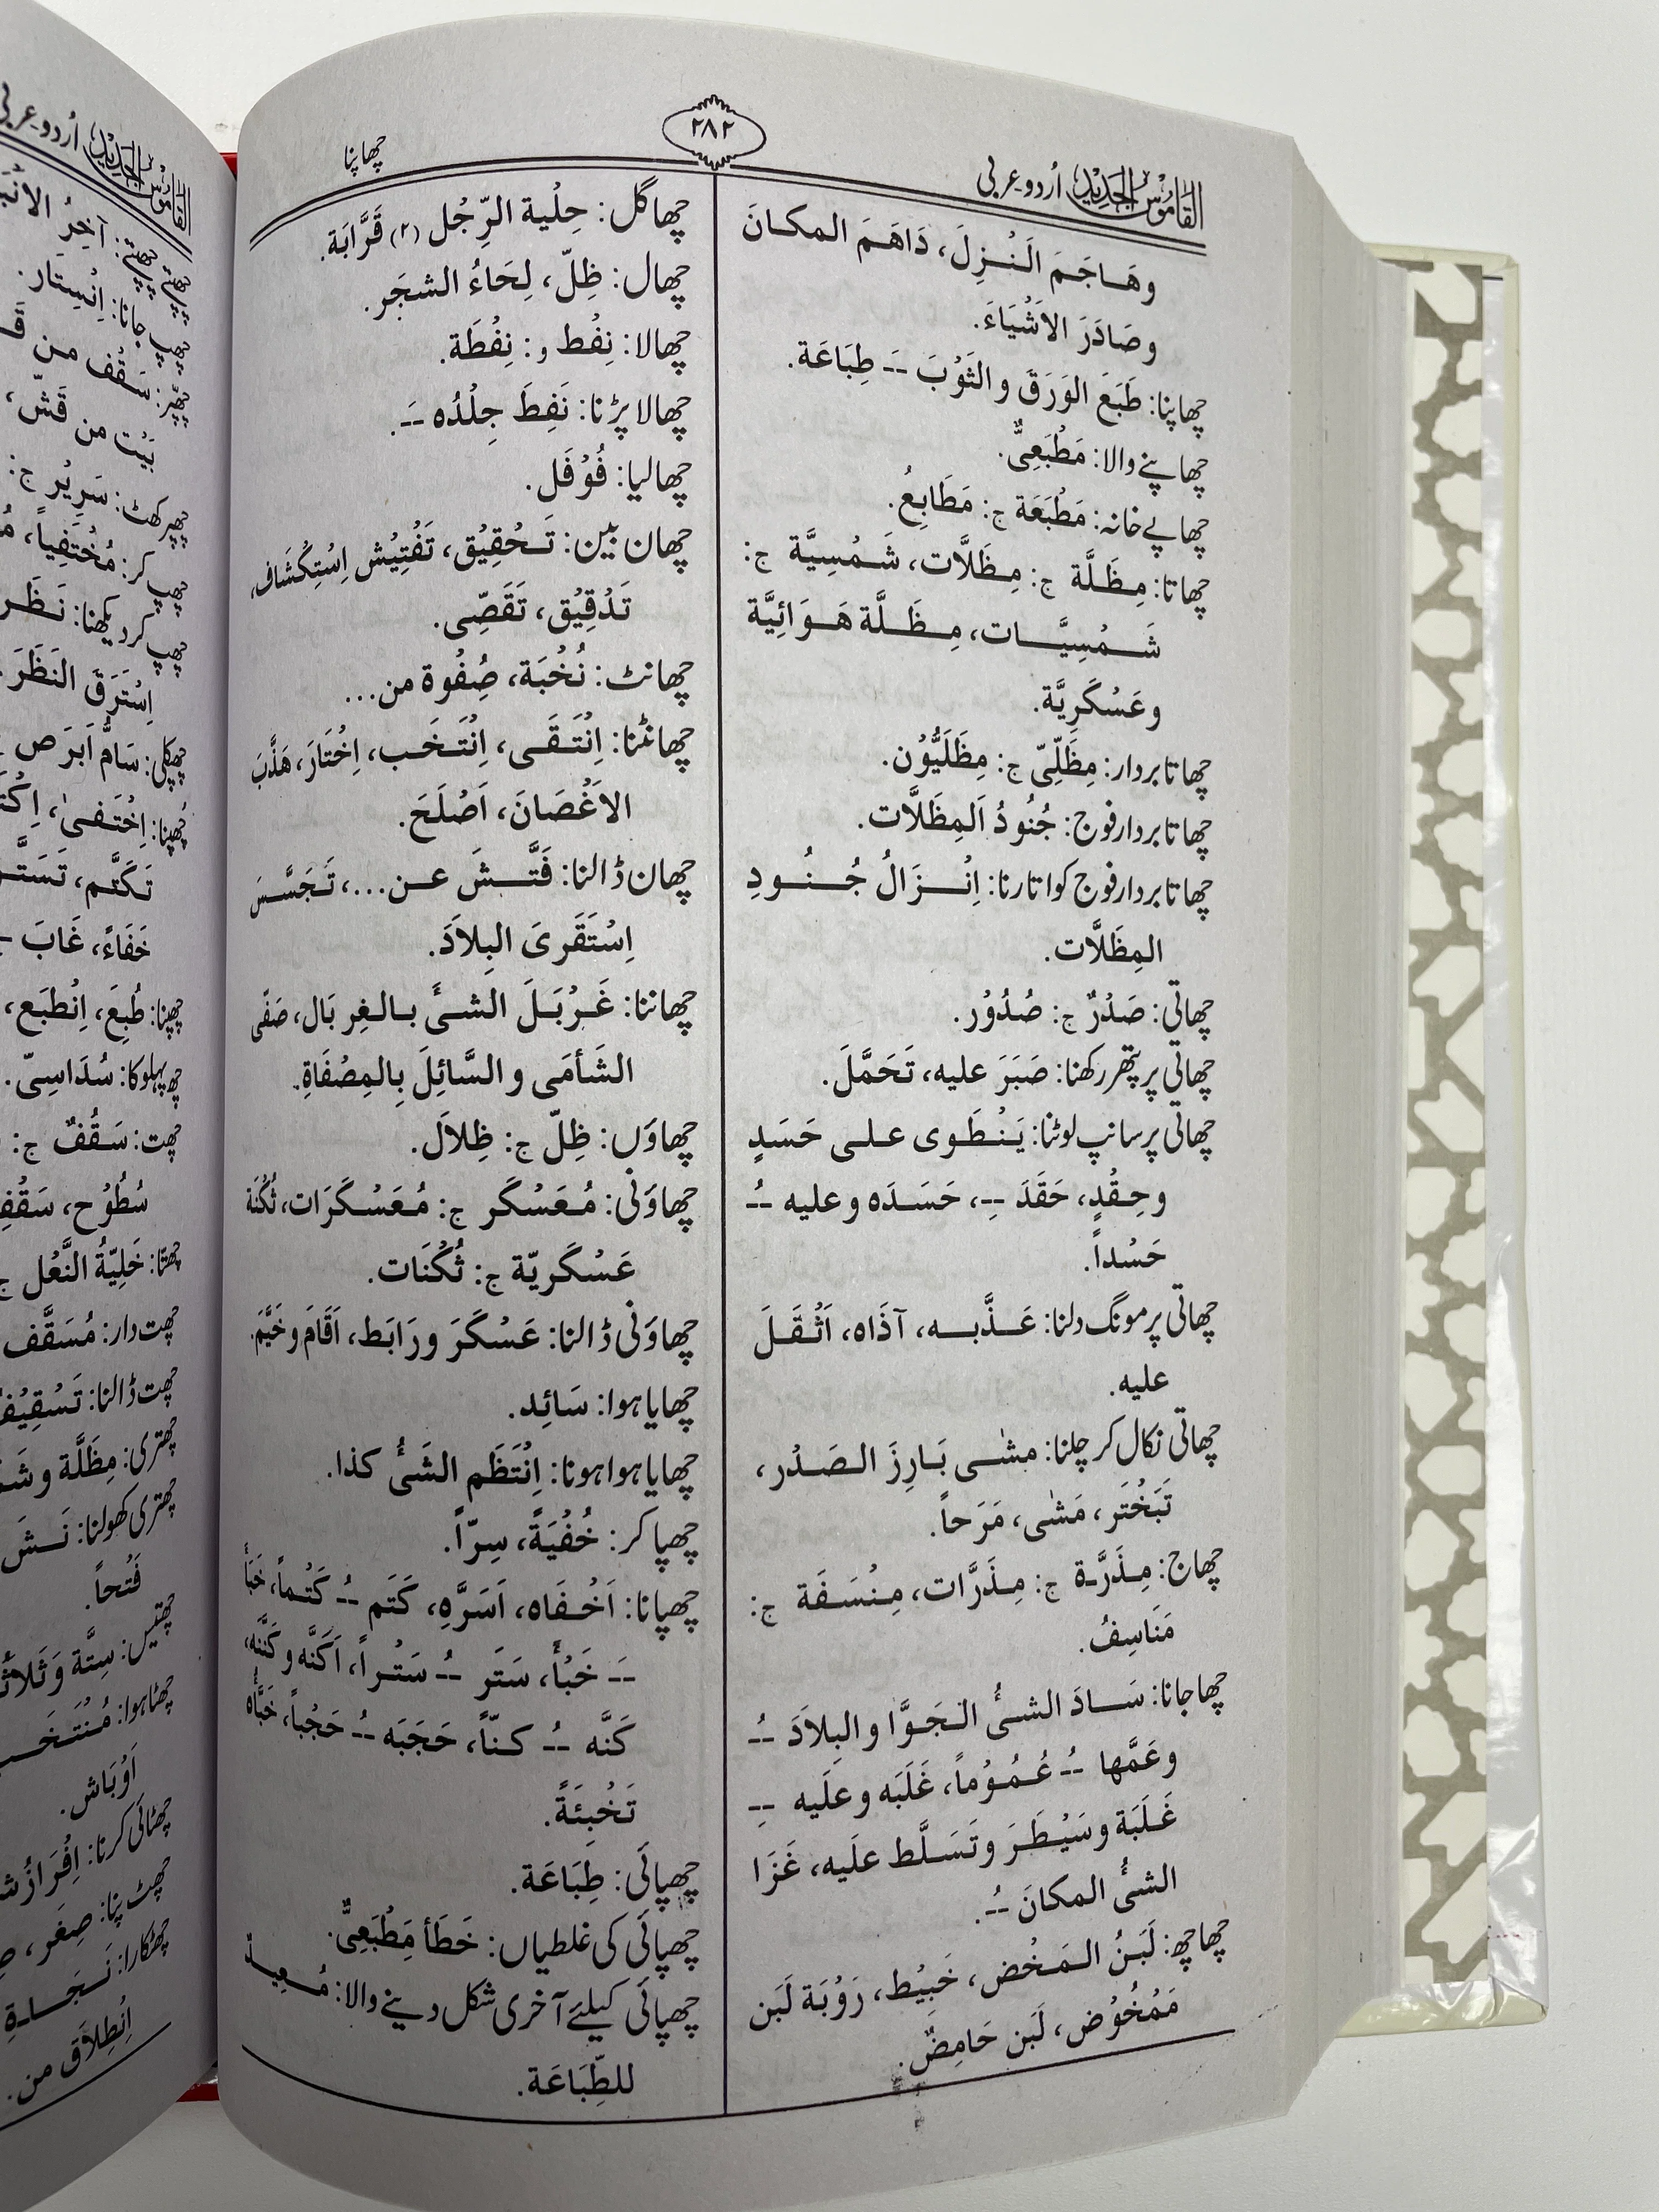 القاموس الجدید اُردو۔عربی
۲۸۲
چھاپنا
وهَاجَمَ الَنْزِلَ، دَاهَمَ المكانَ
وصَادَرَ الاَشْيَاءَ.
چھاپنا: طَبَعَ الوَرَقَ والثَوْبَ -- طِبَاعَة.
چھاپنے والا: مَطْبَعِیٌّ.
چھاپے خانہ: مَطْبَعَة ج: مَطَابِعُ.
چھاتا: مِظَلَّة ج: مِظَلَّات، شَمْسِيَّة ج:
شَمْسِيَّات، مِظَلَّة هَوَائِيَّة
وعَسْكَرِيَّة.
چھاتا بردار: مِظَلِّیّ ج: مِظَلِّيُّوْن.
چھاتا بردار فوج: جُنُودُ اَلمِظَلَّات.
چھاتا بردار فوج کو اتارنا: اِنْزَالُ جُنُودِ
المِظَلَّات.
چھاتی: صَدْرٌ ج: صُدُوْر.
چھاتی پر پتھر رکھنا: صَبَرَ عليه، تَحَمَّلَ.
چھاتی پر سانپ لوٹنا: يَنْطَوى على حَسَدٍ
وحِقْدٍ، حَقَدَ --ِ، حَسَدَه وعليه --ُ
حَسْداً.
چھاتی پر مونگ دلنا: عَذَّبه، آذَاه، اَثْقَلَ
عليه.
چھاتی نکال کر چلنا: مشٰى بَارِزَ الصَدْر،
تَبَخْتَر، مَشٰى، مَرَحاً.
چھاج: مِذَرَّة ج: مِذَرَّات، مِنْسَفَة ج:
مَنَاسِفُ.
چھا جانا: سَادَ الشئُ الجَوَّا والبِلاَدَ --ُ
وعَمَّها --ُ عُمُوْماً، غَلَبَه وعلَيه --ِ
غَلَبَة وسَيْطَرَ وتَسَلَّط علَيه، غَزَا
الشئُ المكانَ --ُ.
چھاچھ: لَبَنُ المَخْض، خَبِيْط، رَوْبَة لَبَن
مَمْخُوْض، لَبَن حَامِضٌ.
چھاگل: حِلْية الرِّجْل (۲) قَرَّابَة.
چھال: ظِلّ، لِحَاءُ الشجَر.
چھالا: نِفْط و: نِفْطَة.
چھالا پڑنا: نَفِطَ جِلْدُه --َ.
چھالیا: فُوْفَل.
چھان بین: تَحْقِيْق، تَفْتِيْش اِسْتِكْشَاف،
تَدْقِيْق، تَقَصِّى.
چھانٹ: نُخْبَة، صِفْوة من...
چھانٹنا: اِنْتَقَى، اِنْتَخَب، اِخْتَارَ، هَذَّبَ
الاَغْصَانَ، اَصْلَحَ.
چھان ڈالنا: فَتَّشَ عن...، تَجَسَّسَ
اِسْتَقَرىَ البِلاَدَ.
چھاننا: غَرْبَلَ الشئَ بالغِربَال، صَفّى
الشَأمَى و السَّائِلَ بِالمِصْفَاةِ.
چھاؤں: ظِلّ ج: ظِلاَل.
چھاؤنی: مُعَسْكَر ج: مُعَسْكَرَات، ثُكْنَة
عَسْكَرِيّة ج: ثُكْنَات.
چھاؤنی ڈالنا: عَسْكَرَ ورَابَط، اَقَامَ وخَيَّمَ.
چھایا ہوا: سَائِد.
چھایا ہوا ہونا: اِنْتَظَم الشَئُ كذا.
چھپا کر: خُفْيَةً، سِرّاً.
چھپانا: اَخْفَاه، اَسَرَّهِ، كَتَم --ُ كَتْماً، خَبَأَ
--َ خَبْأً، سَتَر --ُ سَتْراً، اَكَنَّه وكَنَّنه،
كَنَّه --ُ كنّاً، حَجَبَه --ُ حَجْباً، خَبَّأه
تَخْبِئَةً.
چھپائی: طِبَاعَة.
چھپائی کی غلطیاں: خَطَأ مَطْبَعِیٌّ.
چھپائی کیلئے آخری شکل دینے والا: مُعِيدٌ
للطِّبَاعَة.
القاموس الجدید اُردو۔عربی
چھپ جانا: اِنْسِتار.
بَيْت من قَشّ،
چھپر کھٹ: سَرِيْر ج:
چھپ کر: مُخْتَفِياً،
چھپ کر دیکھنا: نَظَر
اِسْتَرَقَ النَظَرَ.
چھپکلی: سَامُّ اَبرَص
چھپنا: اِخْتَفىٰ،
تَكَتَّم،
خَفَاءً، غَابَ
چھپنا: طُبِعَ، اِنْطبَع،
چھ پہلو کا: سُدَاسِیّ.
چھت: سَقْفٌ ج:
سُطُوْح،
چھتا: خَلِيّةُ النَّحْل
چھت دار: مُسَقَّف
چھت ڈالنا:
چھتری: مِظَلَّة
چھتری کھولنا:
فَتْحاً.
چھتیس: سِتَّة
چھٹا ہوا:
اَوْبَاش.
چھٹائی کرنا:
چھٹ پنا: صِغَر،
چھٹکارا:
اِنْطِلاَق من.